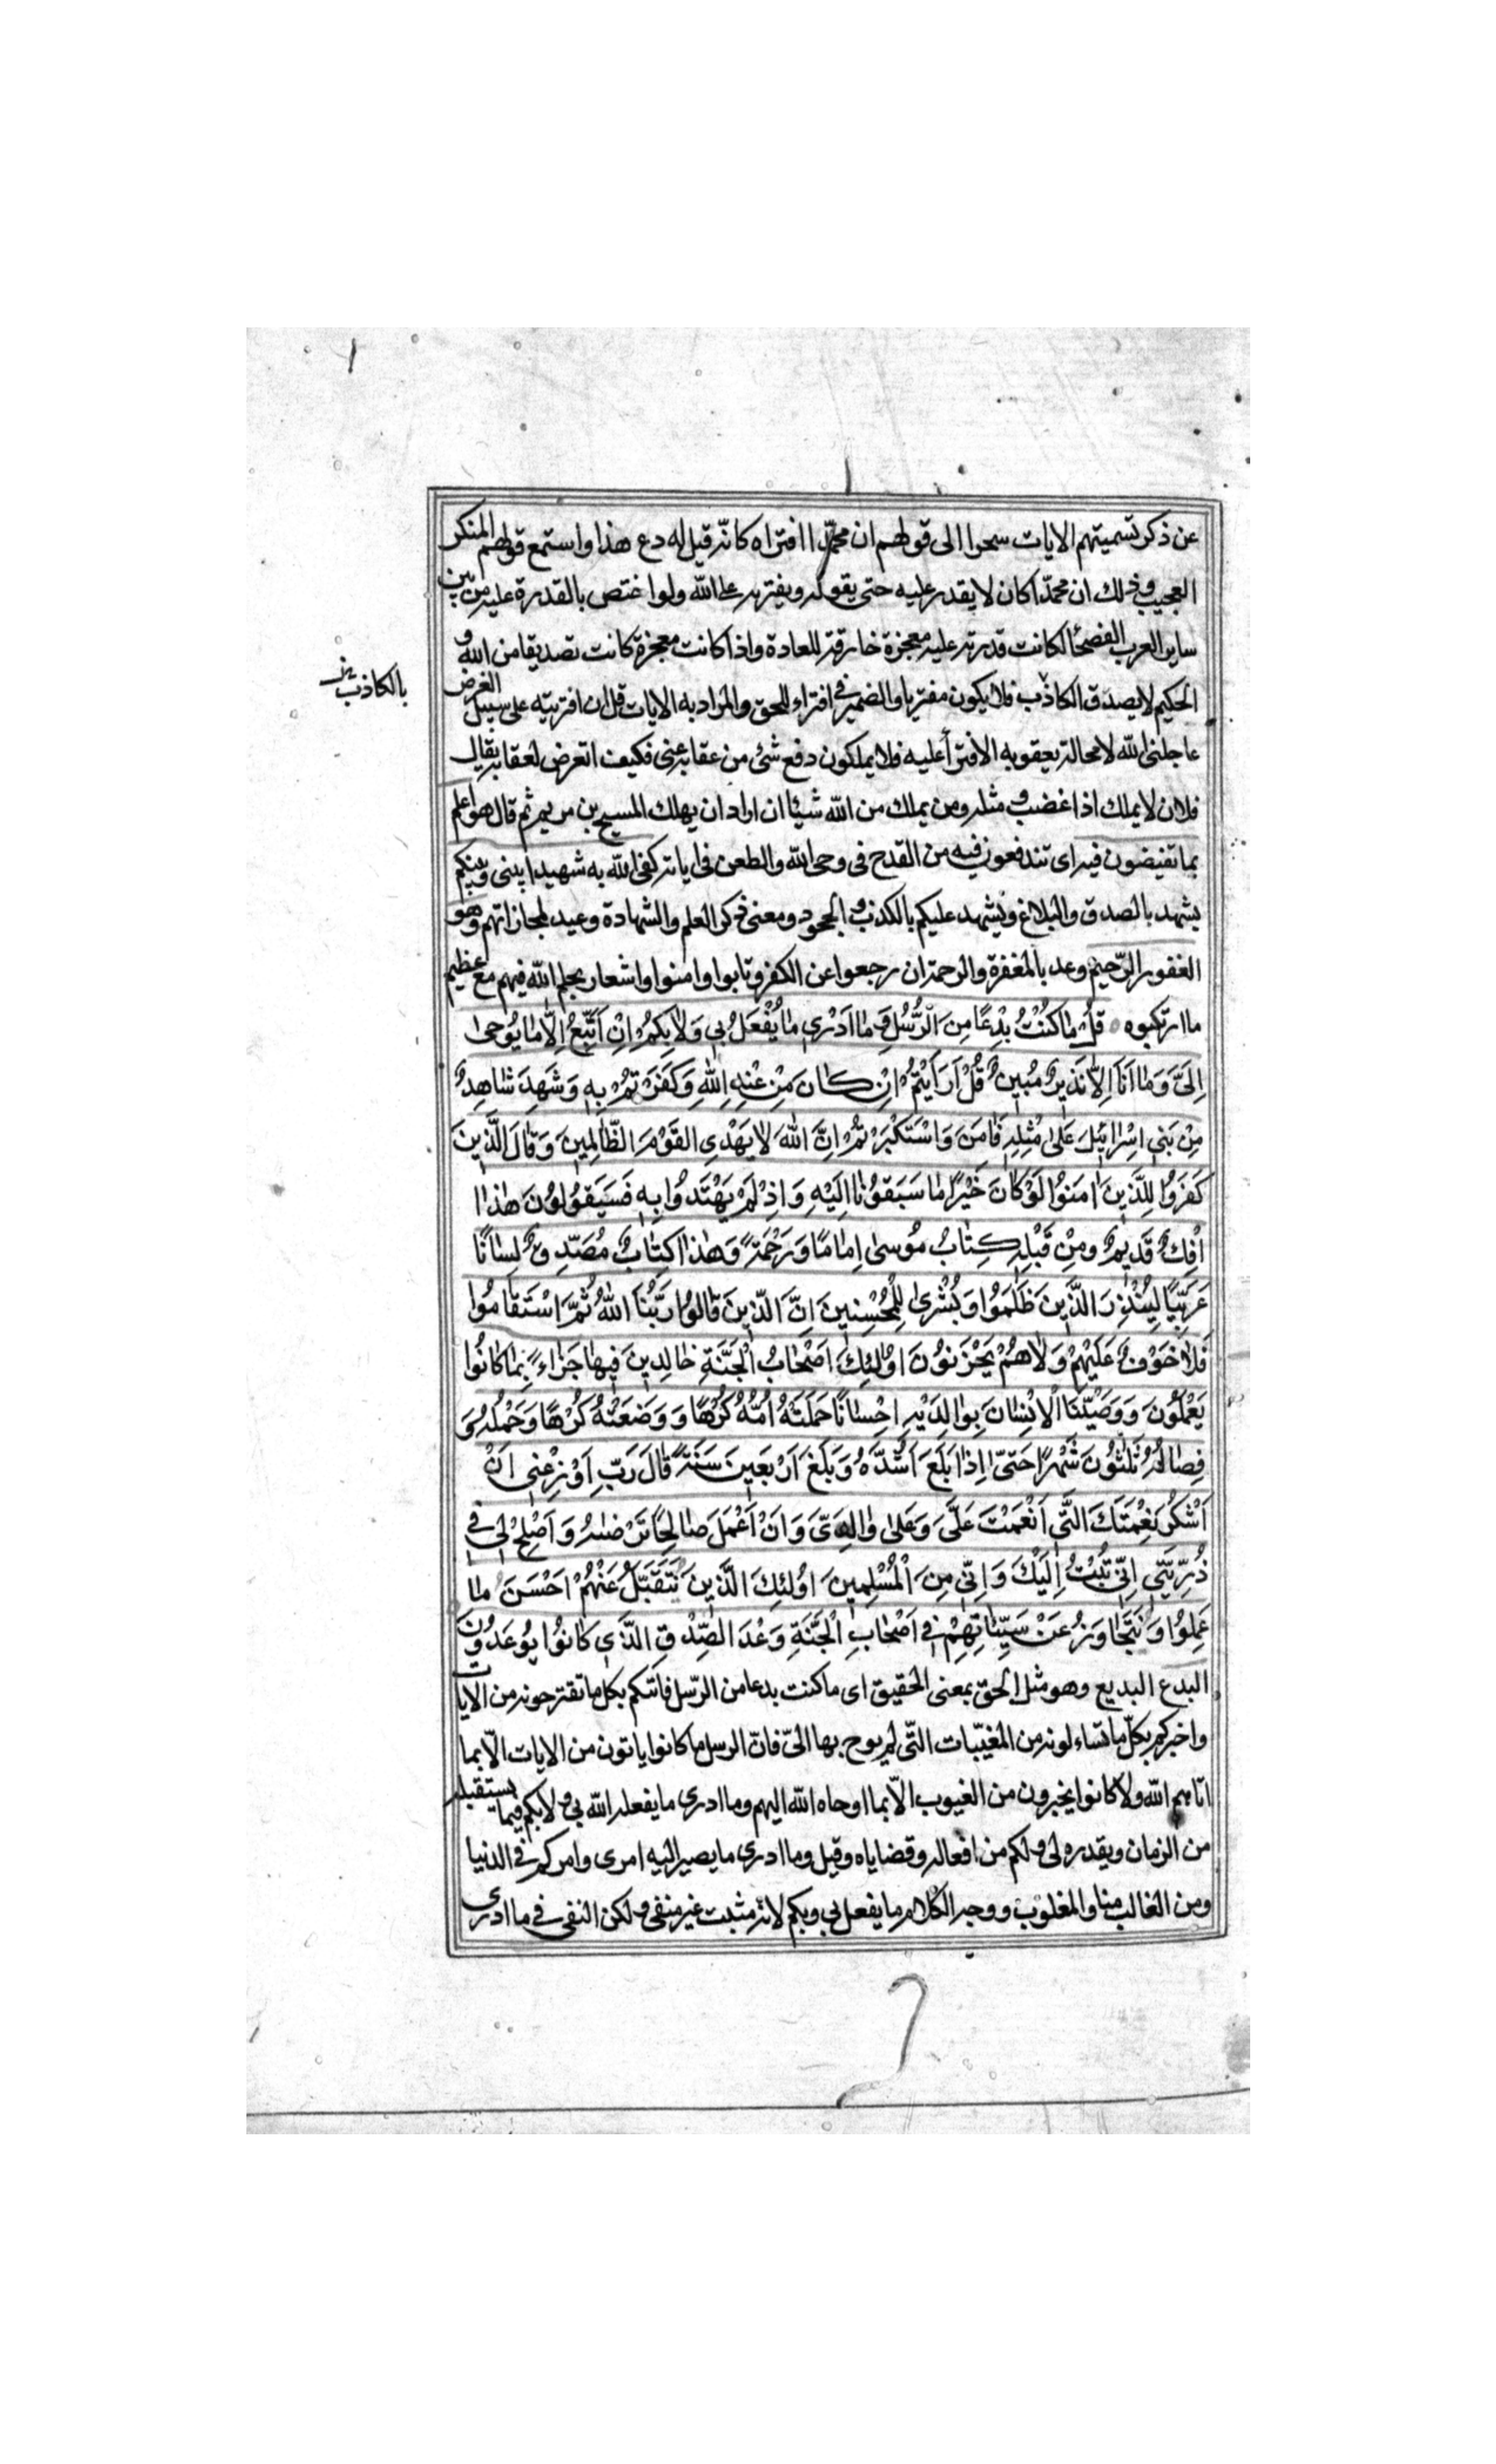 عن ذكر تسميتهم الايات سحرا الى قولهم ان محمّدا افتراه كانّه قيل له دع هذا واستمع قولهم المنكر
العجيب وذلك ان محمّدا كان لا يقدر عليه حتى يقوله ويفتريه على الله ولو اختص بالقدرة عليه من بين
ساير العرب الفصحا لكانت قدرته عليه معجزة خارقة للعادة واذا كانت معجزة كانت تصديقا من الله و
الحكيم لا يصدق الكاذب فلا يكون مفتريا والضمير في افتراه للحق والمراد به الايات قل ان افتريته على سبيل الفرض
بالكاذبين
عاجلنى الله لا محالة بعقوبه الافترا عليه فلا يملكون دفع شئ من عقابه عنى فكيف اتعرض لعقابه يقال
فلان لا يملك اذا غضب و مثله ومن يملك من الله شيئا ان اراد ان يهلك المسيح بن مريم ثم قال هو اعلم
بما تفيضون فيه اى تندفعون فيه من القدح فى وحى الله والطعن فى اياته كفى الله به شهيدا بينى وبينكم
يشهد بالصدق والبلاغ ويشهد عليكم بالكذب و الجحود ومعنى ذكر العلم والشهادة وعيد لمجازاتهم وهو
الغفور الرّحيم وعد بالمغفرة والرحمة ان رجعوا عن الكفر وتابوا وامنوا واشعار بحلم الله فيهم مع عظيم
ما ارتكبوه قُلْ مٰا كُنْتُ بِدْعًا مِنَ الرُّسُلِ وَ مٰا اَدْرِي مٰا يُفْعَلُ بِي وَلاٰ بِكُمْ اِنْ اَتَّبِعُ اِلاّٰ مٰا يُوحىٰ
اِلَىَّ وَمٰا اَنَا اِلاّٰ نَذِيرٌ مُبِينٌ قُلْ اَرَاَيْتُمْ اِنْ كٰانَ مِنْ عِنْدِ اللهِ وَكَفَرْتُمْ بِهِ وَشَهِدَ شٰاهِدٌ
مِنْ بَنِي اِسْرٰائِيلَ عَلىٰ مِثْلِهِ فَاٰمَنَ وَاسْتَكْبَرْتُمْ اِنَّ اللهَ لاٰ يَهْدِي القَوْمَ الظّٰالِمِينَ وَقٰالَ الَّذِينَ
كَفَرُوا لِلَّذِينَ اٰمَنُوا لَوْ كٰانَ خَيْرًا مٰا سَبَقُونٰا اِلَيْهِ وَاِذْ لَمْ يَهْتَدُوا بِهِ فَسَيَقُولُونَ هٰذٰا
اِفْكٌ قَدِيمٌ ومِنْ قَبْلِهِ كِتٰابُ مُوسىٰ اِمٰامًا وَرَحْمَةً وَهٰذٰا كِتٰابٌ مُصَدِّقٌ لِسٰانًا
عَرَبِيًّا لِيُنْذِرَ الَّذِينَ ظَلَمُوا وَبُشْرىٰ لِلْمُحْسِنِينَ اِنَّ الَّذِينَ قٰالُوا رَبُّنَا اللهُ ثُمَّ اسْتَقٰامُوا
فَلاٰ خَوْفٌ عَلَيْهِمْ وَلاٰ هُمْ يَحْزَنُونَ اُولٰئِكَ اَصْحٰابُ الْجَنَّةِ خٰالِدِينَ فِيهٰا جَزٰاءً بِمٰا كٰانُوا
يَعْمَلُونَ وَوَصَّيْنَا الْاِنْسٰانَ بِوٰالِدَيْهِ اِحْسٰانًا حَمَلَتْهُ اُمُّهُ كُرْهًا وَوَضَعَتْهُ كُرْهًا وَحَمْلُهُ وَ
فِصٰالُهُ ثَلٰثُونَ شَهْرًا حَتّىٰ اِذٰا بَلَغَ اَشُدَّهُ وَبَلَغَ اَرْبَعِينَ سَنَةً قٰالَ رَبِّ اَوْزِعْنِي اَنْ
اَشْكُرَ نِعْمَتَكَ الَّتِي اَنْعَمْتَ عَلَىَّ وَعَلىٰ وٰالِدَىَّ وَاَنْ اَعْمَلَ صٰالِحًا تَرْضٰىهُ وَاَصْلِحْ لِي فِي
ذُرِّيَّتِي اِنِّي تُبْتُ اِلَيْكَ وَاِنِّي مِنَ الْمُسْلِمِينَ اُولٰئِكَ الَّذِينَ نَتَقَبَّلُ عَنْهُمْ اَحْسَنَ مٰا
عَمِلُوا وَنَتَجٰاوَزُ عَنْ سَيِّئٰاتِهِمْ فِي اَصْحٰابِ الْجَنَّةِ وَعْدَ الصِّدْقِ الَّذِي كٰانُوا يُوعَدُونَ
البدع البديع وهو مثل الحق بمعنى الحقيق اى ما كنت بدعا من الرّسل فاتتكم بكل ما تقترحونه من الايات
واخبركم بكلّ ما تساءلونه من المغيّبات التّي لم يوح بها الىّ فانّ الرسل ما كانوا ياتون من الايات الاّ بما
اتاهم الله ولا كانوا يخبرون من الغيوب الاّ بما اوحاه الله اليهم وما ادرى ما يفعله الله بي و لا بكم فيما يستقبله
من الزمان ويقدره لى و لكم من افعاله وقضاياه وقيل وما ادرى ما يصير اليه امرى وامركم فى الدنيا
ومن الغالب منا والمغلوب ووجه الكلام ما يفعل بي وبكم لانه مثبت غير منفى و لكن النفى في ما ادرى